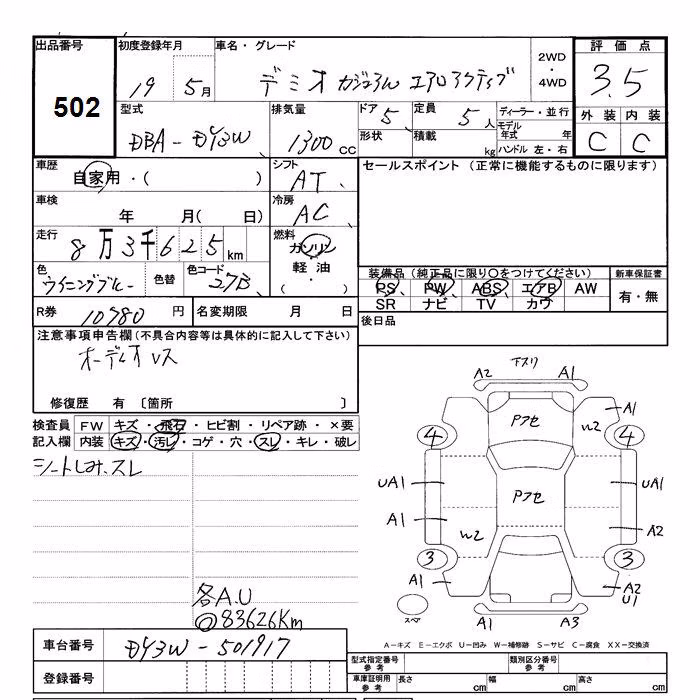 出品番号 初度登録年月 車名・グレード 評価点
502
19 年 5月 デミオ カジュアル エアロアクティブ 2WD・4WD 3.5
型式 排気量 ドア 5、 定員 5人 ディーラー・並行 外装 内装
DBA-DY3W 1300cc 形状 積載 kg モデル年式 年 ハンドル 左・右 C C
車歴 自家用・( ) シフト AT、 セールスポイント (正常に機能するものに限ります)
車検 年 月( 日) 冷房 AC、
走行 8万3千625km 燃料 ガソリン 軽油・( )
色 ウイニングブルー 色替 色コード 27B、 装備品 (純正品に限り○をつけてください) 新車保証書
PS PW ABS エアB AW 有・無
SR ナビ TV カワ
R券 10980円 名変期限 月 日 後日品
注意事項申告欄 (不具合内容等は具体的に記入して下さい)
オーディオレス
修復歴 有 〔箇所 〕
検査員 FW キズ・飛石・ヒビ割・リペア跡・×要
記入欄 内装 キズ・汚レ・コゲ・穴・スレ・キレ・破レ
シートしみ、スレ
各A.U
◎83626Km
下スリ
A2 A1
Pアセ
W2 A1
4 4
UA1 Pアセ UA1
A1 A2
W2
3 3
A1 A2 U1
スペア A1 A3
A-キズ E-エクボ U-凹み W-補修跡 S-サビ C-腐食 XX-交換済
車台番号 DY3W-501917 型式指定番号 参考 類別区分番号 参考
登録番号 車庫証明用 参考 長さ cm 幅 cm 高さ cm